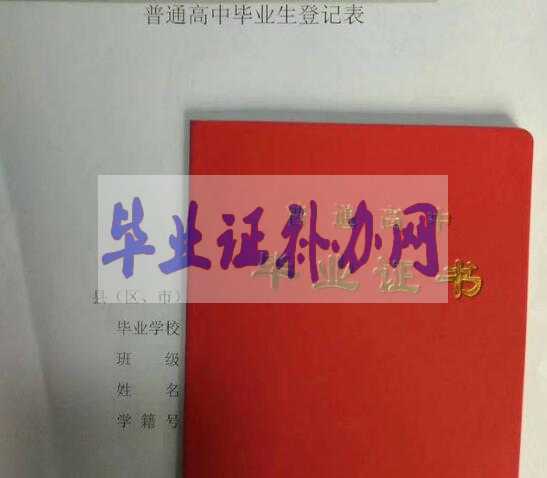 普通高中毕业生登记表
普通高中
毕业证补办网
毕业证书
县（区、市）
毕业学校
班 级
姓 名
学籍号